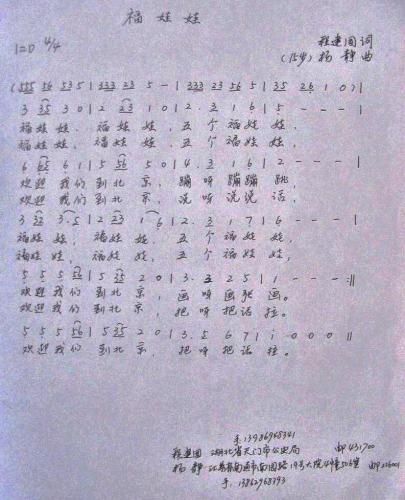 福娃娃
1=D 4/4
程建国 词
(15岁) 杨静 曲
(555 56 53 5 | 333 23 5 - | 333 23 56 5 | 35 26 1 0) |
3 35 3 0 | 2 23 1 0 | 2. 3 1 6 | 5 - - - |
福娃娃, 福娃娃, 五个福娃娃,
福娃娃, 福娃娃, 五个福娃娃,
6 66 6 1 | 5 56 5 0 | 4. 3 1 6 | 2 - - - |
欢迎我们到北京, 蹦呀蹦蹦跳,
欢迎我们到北京, 说呀说说话,
3 32 3 5 | 2 23 1 6 | 2. 3 1 7 | 6 - - - |
福娃娃, 福娃娃, 五个福娃娃,
福娃娃, 福娃娃, 五个福娃娃,
5 5 5 56 | 5 35 2 0 | 3. 2 2 5 | 1 - - - :||
欢迎我们到北京, 画呀画张画。
欢迎我们到北京, 把呀把话拉。
5 5 5 56 | 5 35 2 0 | 3. 5 6 7 | i 0 0 0 ||
欢迎我们到北京, 把呀把话拉。
手.13986968341
程建国 湖北省天门市公安局 邮431700
杨静 江苏省南通市南园路19号大院49幢506室 邮226001
手.13862968393